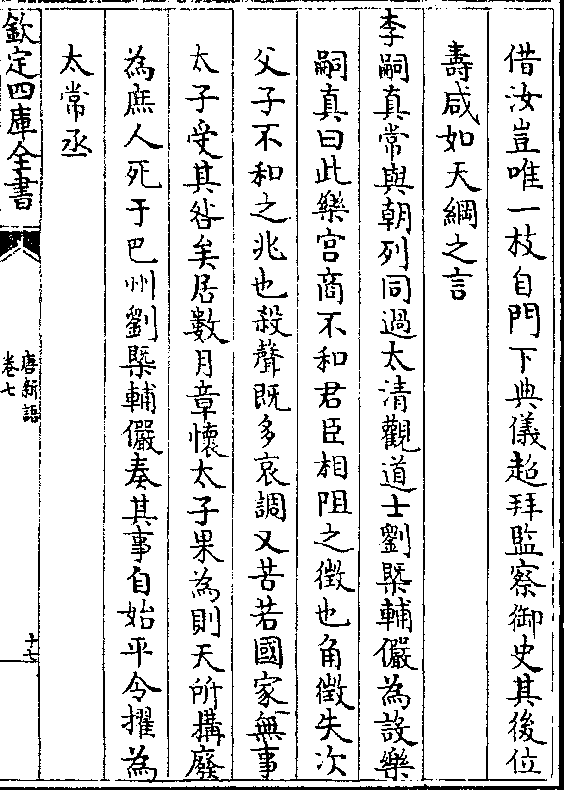 借汝豈唯一枝自門下典儀超拜監察御史其後位
壽咸如天綱之言
李嗣真常與朝列同過太清觀道士劉槩輔儼為設樂
嗣真曰此樂宫商不和君臣相阻之徵也角徵失次
父子不和之兆也殺聲既多哀調又苦若國家無事
太子受其咎矣居數月章懷太子果為則天所搆廢
為庶人死于巴州劉槩輔儼奏其事自始平令擢為
太常丞
欽定四庫全書
唐新語
卷七
十七